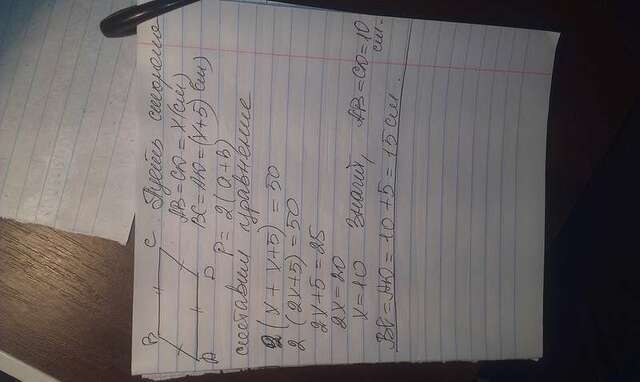 B C Пусть сторона
AB = CD = x (см)
BC = AD = (x+5) (см)
D
P = 2(a+b)
составим уравнение
2(x + x+5) = 50
2(2x+5) = 50
2x+5 = 25
2x = 20
x = 10 значит, AB = CD = 10 см.
BC = AD = 10 + 5 = 15 см.